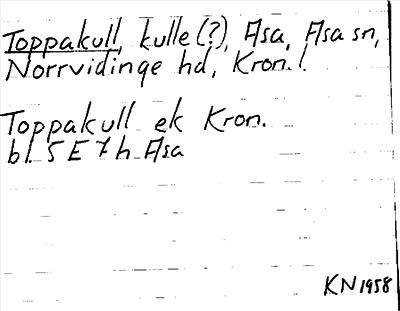 Toppakull, kulle (?), Asa, Asa sn,
Norrvidinge hd, Kron. l.
Toppakull ek Kron.
bl. 5E7h Asa
KN 1958